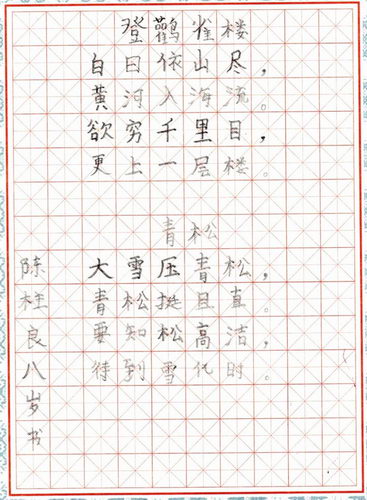 登鹳雀楼
白日依山尽，
黄河入海流。
欲穷千里目，
更上一层楼。
青松
大雪压青松，
青松挺且直。
要知松高洁，
待到雪化时。
陈柱良八岁书